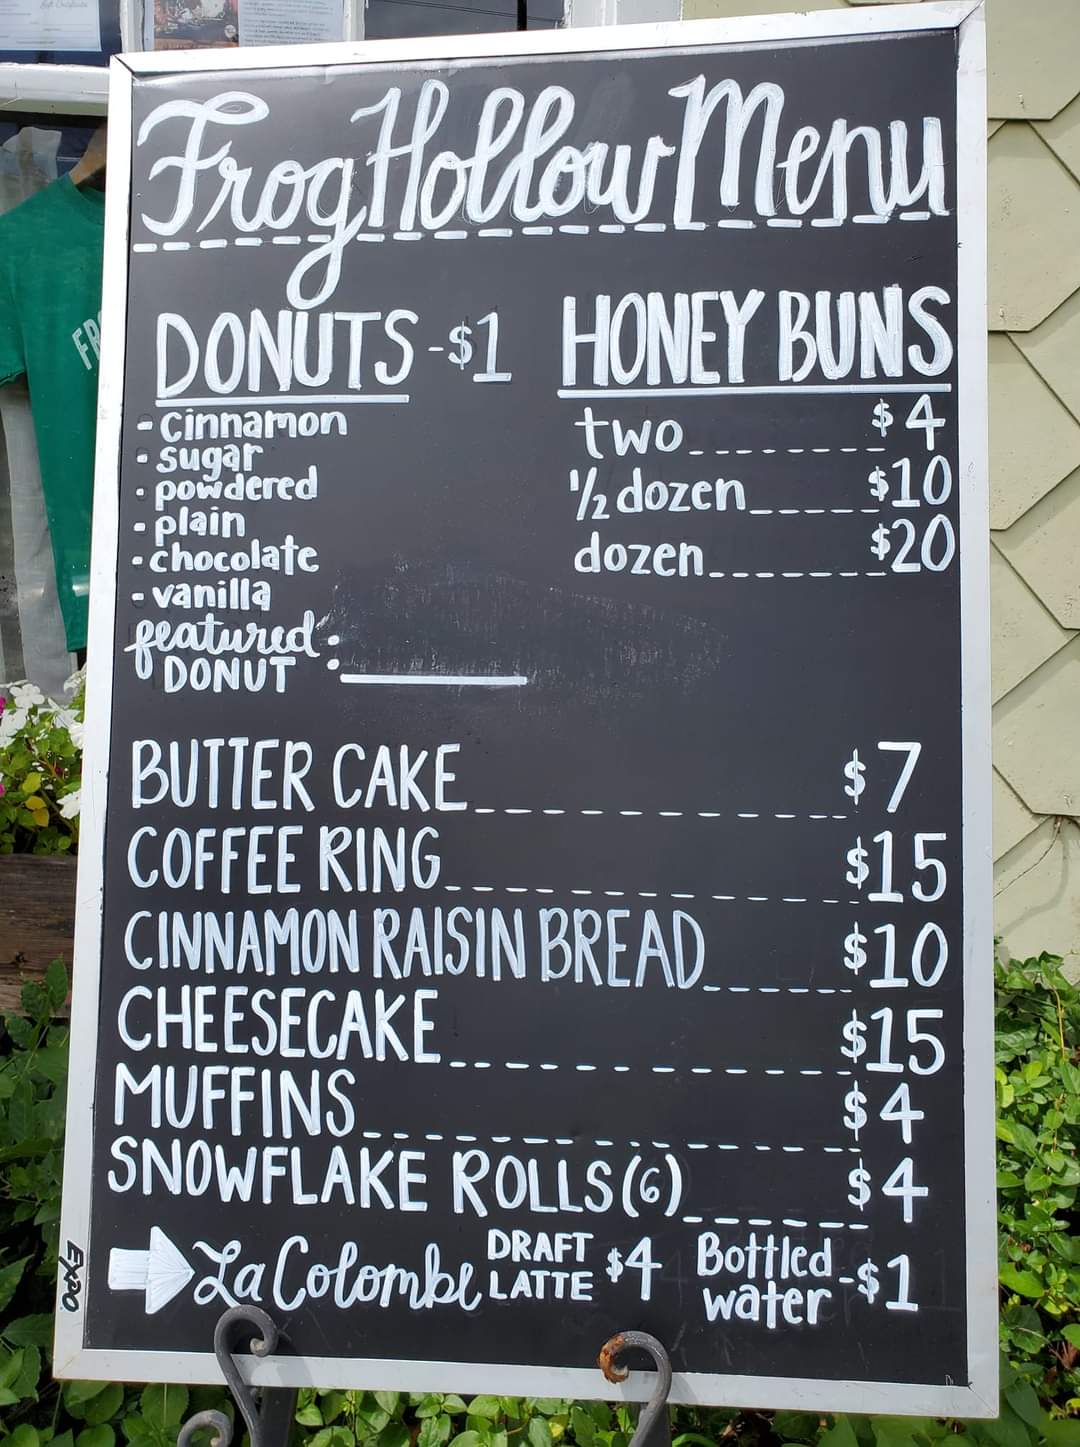 Frog Hollow Menu
DONUTS -$1
- cinnamon
- sugar
- powdered
- plain
- chocolate
- vanilla
featured:
DONUT
HONEY BUNS
two $4
1/2 dozen $10
dozen $20
BUTTER CAKE $7
COFFEE RING $15
CINNAMON RAISIN BREAD $10
CHEESECAKE $15
MUFFINS $4
SNOWFLAKE ROLLS (6) $4
La Colombe DRAFT LATTE $4
Bottled water -$1
EXPO
FR